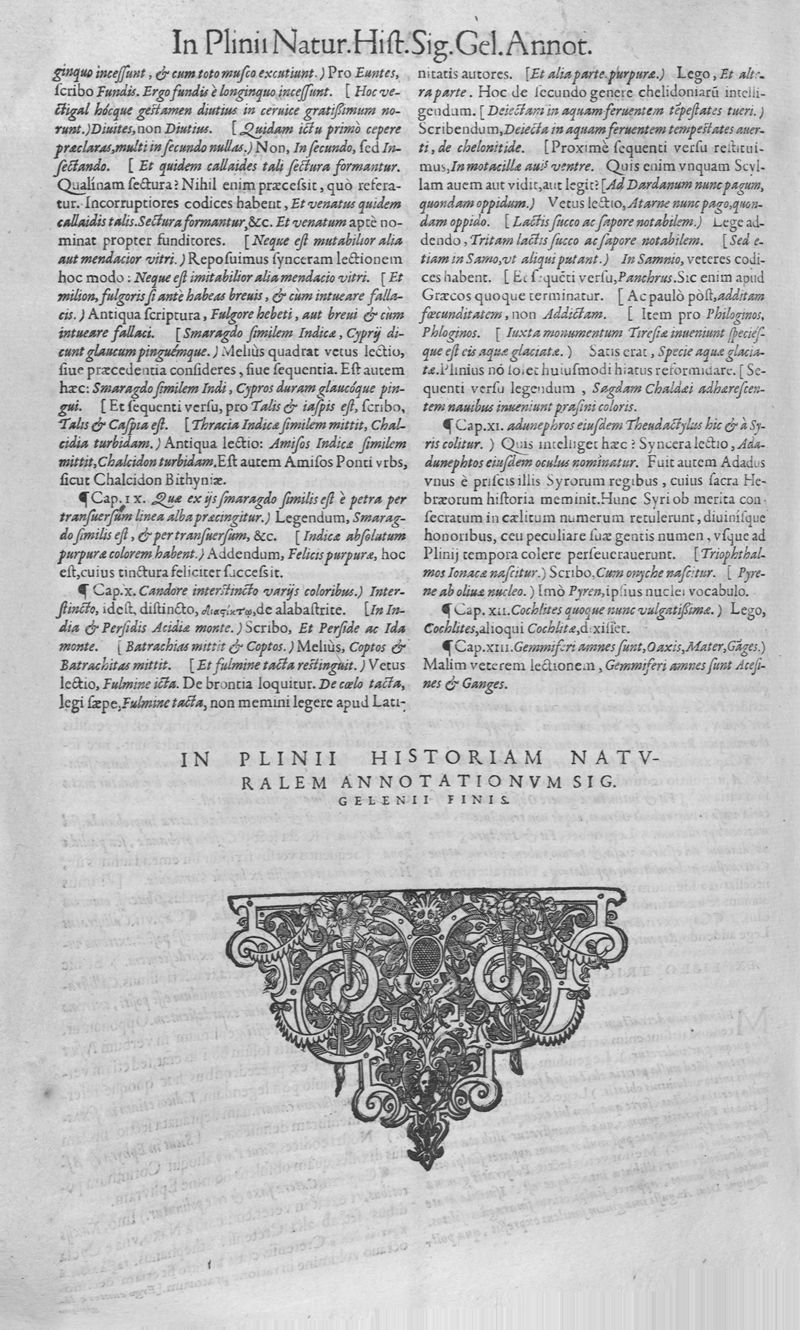 In Plinii Natur. Hist. Sig. Gel. Annot.
ginquo incessunt, & cum toto musco excutiunt.) Pro Euntes,
scribo Fundis. Ergo fundis è longinquo incessunt. [ Hoc ve-
ctigal hócque gestamen diutius in ceruice gratißimum no-
runt.) Diuites, non Diutius. [ Quidam ictu primò cepere
præclaras, multi in secundo nullas.) Non, In secundo, sed In-
sectando. [ Et quidem callaides tali sectura formantur.
Qualinam sectura? Nihil enim præcessit, quò refera-
tur. Incorruptiores codices habent, Et venatus quidem
callaidis talis. Sectura formantur, &c. Et venatum aptè no-
minat propter funditores. [ Neque est mutabilior alia
aut mendacior vitri.) Reposuimus synceram lectionem
hoc modo: Neque est imitabilior alia mendacio vitri. [ Et
milion, fulgoris si antè habeas breuis, & cùm intueare falla-
cis.) Antiqua scriptura, Fulgore hebeti, aut breui & cùm
intueare fallaci. [ Smaragdo similem Indicæ, Cyprij di-
cunt glaucum pinguémque.) Meliùs quadrat vetus lectio,
siue præcedentia consideres, siue sequentia. Est autem
hæc: Smaragdo similem Indi, Cypros duram glaucóque pin-
gui. [ Et sequenti versu, pro Talis & iaspis est, scribo,
Talis & Caspia est. [ Thracia Indicæ similem mittit, Chal-
cidia turbidam.) Antiqua lectio: Amisos Indicæ similem
mittit, Chalcidon turbidam. Est autem Amisos Ponti vrbs,
sicut Chalcidon Bithyniæ.
¶ Cap. IX. Quæ ex ijs smaragdo similis est è petra per
transuersum linea alba præcingitur.) Legendum, Smarag-
do similis est, & per transuersum, &c. [ Indica absolutum
purpuræ colorem habent.) Addendum, Felicis purpuræ, hoc
est, cuius tinctura feliciter successit.
¶ Cap. X. Candore interstincto varijs coloribus.) Inter-
stincto, idest, distincto, de alabastrite. [ In In-
dia & Persidis Acidia monte.) Scribo, Et Perside ac Ida
monte. [ Batrachias mittit & Coptos.) Meliùs, Coptos &
Batrachitas mittit. [ Et fulmine tacta restinguit.) Vetus
lectio, Fulmine icta. De brontia loquitur. De cœlo tacta,
legi sæpe, Fulmine tacta, non memini legere apud Lati-
nitatis autores. [ Et alia parte purpuræ.) Lego, Et alte-
ra parte. Hoc de secundo genere chelidoniarũ intelli-
gendum. [ Deiectam in aquam feruentem tẽpestates tueri.)
Scribendum, Deiecta in aquam feruentem tempestates auer-
ti, de chelonitide. [ Proximè sequenti versu restitui-
mus, In motacillæ auis ventre. Quis enim vnquam Scyl-
lam auem aut vidit, aut legit? [ Ad Dardanum nunc pagum,
quondam oppidum.) Vetus lectio, Atarne nunc pago, quon-
dam oppido. [ Lactis succo ac sapore notabilem.) Lege ad-
dendo, Tritam lactis succo ac sapore notabilem. [ Sed e-
tiam in Samo, vt aliqui putant.) In Samnio, veteres codi-
ces habent. [ Et sequẽti versu, Panchrus. Sic enim apud
Græcos quoque terminatur. [ Ac paulò pòst, additam
fœcunditatem, non Addictam. [ Item pro Philoginos,
Phloginos. [ Iuxta monumentum Tiresiæ inueniunt species-
que est eis aquæ glaciatæ.) Satis erat, Specie aquæ glacia-
tæ. Plinius nõ solet huiusmodi hiatus reformidare. [ Se-
quenti versu legendum, Sagdam Chaldæi adhærescen-
tem nauibus inueniunt prasini coloris.
¶ Cap. XI. adunephros eiusdem Theudactylus hic & à Sy-
ris colitur.) Quis intelliget hæc? Syncera lectio, Ada-
dunephtos eiusdem oculus nominatur. Fuit autem Adadus
vnus è priscis illis Syrorum regibus, cuius sacra He-
bræorum historia meminit. Hunc Syri ob merita con-
secratum in cælitum numerum retulerunt, diuinisque
honoribus, ceu peculiare suæ gentis numen, vsque ad
Plinij tempora colere perseuerauerunt. [ Triophthal-
mos Ionaca nascitur.) Scribo, Cum onyche nascitur. [ Pyre-
ne ab oliuæ nucleo.) Imò Pyren, ipsius nuclei vocabulo.
¶ Cap. XII. Cochlites quoque nunc vulgatißimæ.) Lego,
Cochlites, alioqui Cochlitæ, dixisset.
¶ Cap. XIII. Gemmiferi amnes sunt, Oaxis, Mater, Gages.)
Malim veterem lectionem, Gemmiferi amnes sunt Acesi-
nes & Ganges.
IN PLINII HISTORIAM NATV-
RALEM ANNOTATIONVM SIG.
GELENII FINIS.